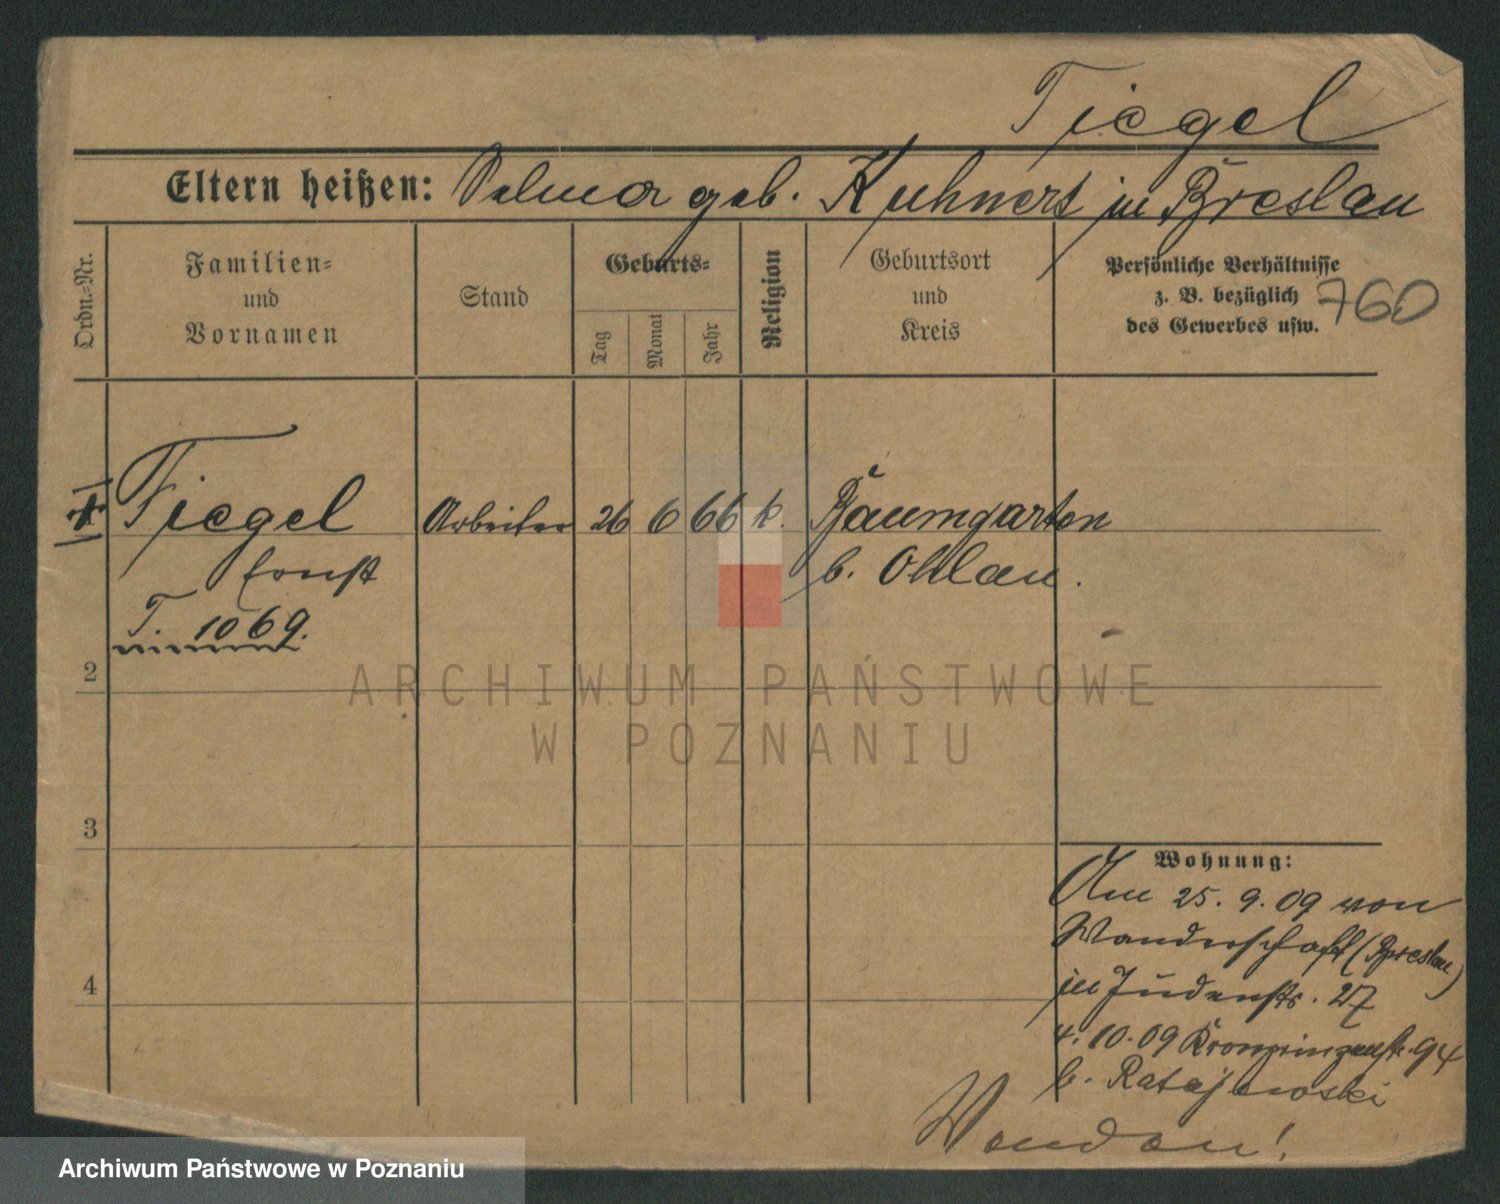 Tiegel
Eltern heißen: geb. Kuhnert in Breslau
Ordn.=Nr.
Familien=
und
Vornamen
Stand
Geburts=
Tag
Monat
Jahr
Religion
Geburtsort
und
Kreis
Persönliche Verhältnisse
z. B. bezüglich
des Gewerbes usw.
760
1 Tiegel Arbeiter 26 6 66 k. Baumgarten
Ernst b. Ohlau.
T. 1069.
2
3
4
Wohnung:
Am 25. 9. 09 von
Wanderschaft (Breslau)
in Judenstr. 27
4. 10. 09 Kronprinzenstr. 94
b. Ratajewski
ARCHIWUM PAŃSTWOWE
W POZNANIU
Archiwum Państwowe w Poznaniu